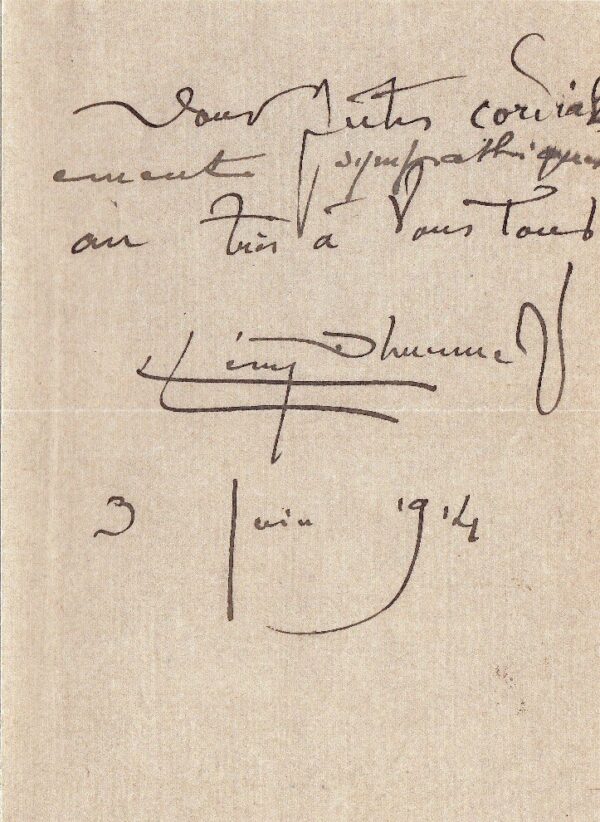 Vous êtes cordial
ement sympathique
ain très à vous tous
Rémy Dhurmer
3 Juin 1914